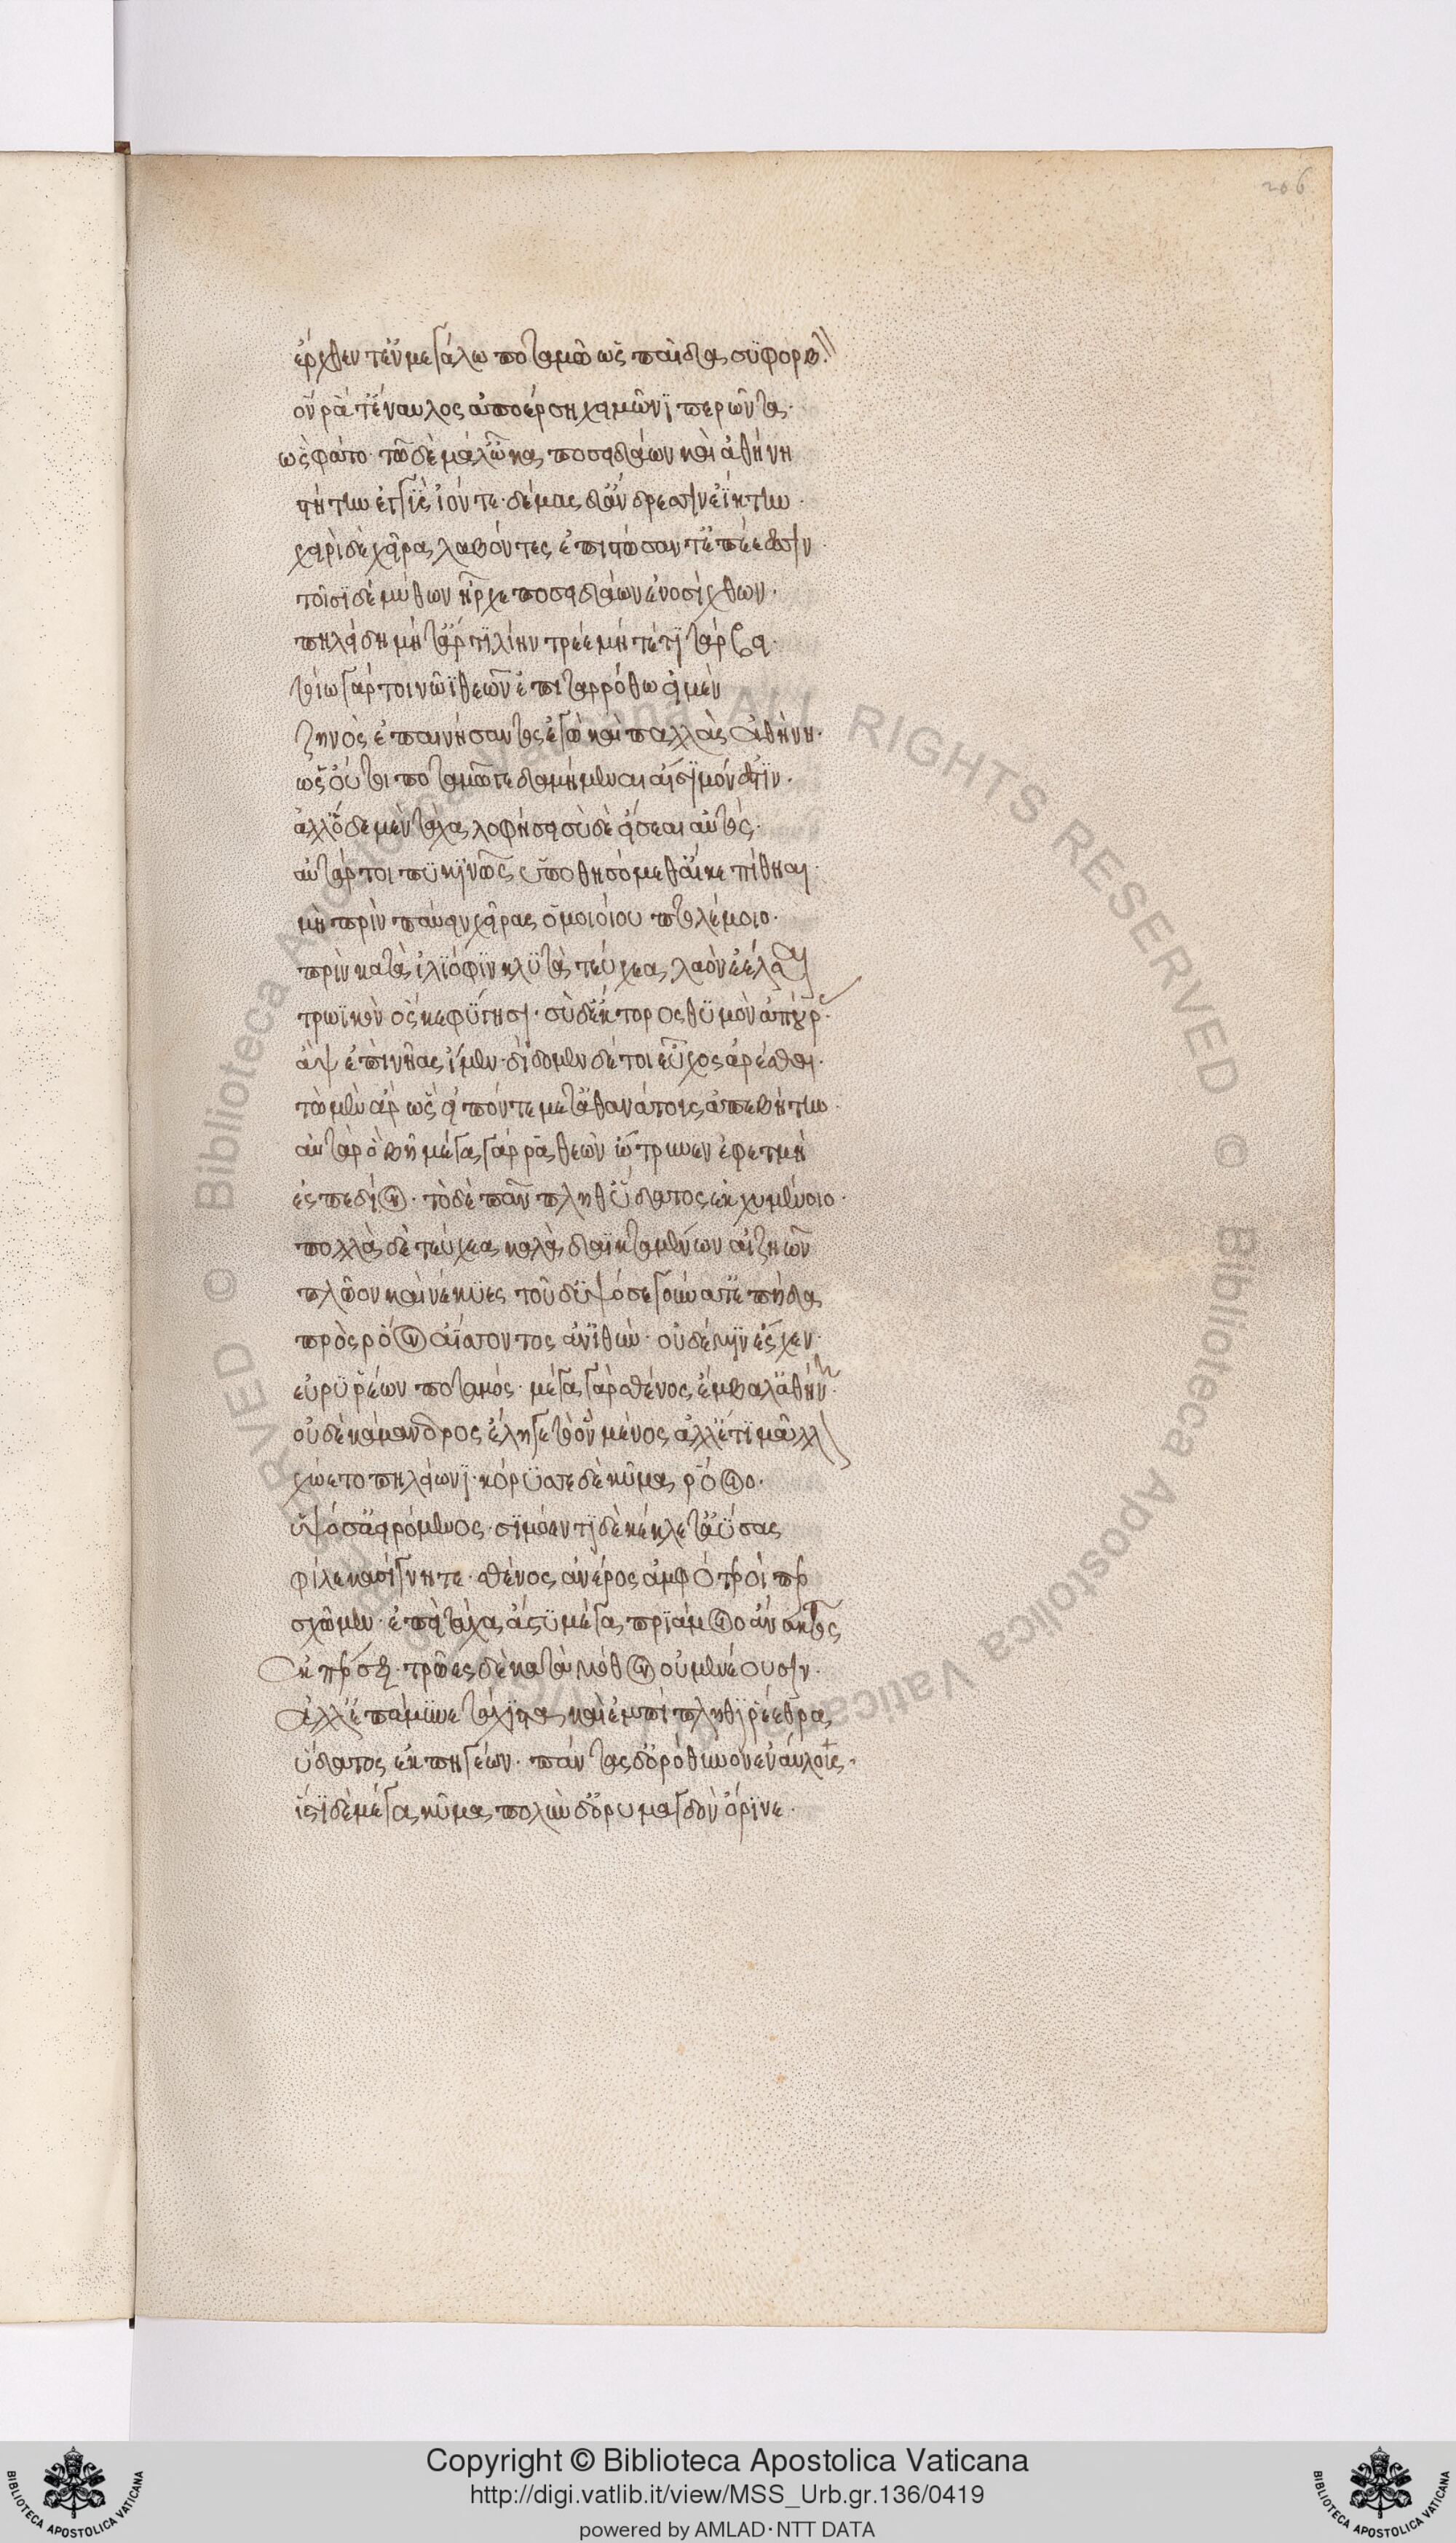 206
ἐρχθέντ' ἐν μεγάλω ποταμῶ ὡς παῖδα συφορβ
ὅν ῥά τ' ἔναυλος ἀποέρση χειμῶνι περῶντα·
ὣς φάτο· τῶ δὲ μάλ' ὦκα ποσειδάων καὶ ἀθήνη
στήτην ἐγγὺς ἰόντε· δέμας δ' ἄνδρεσσιν ἐΐκτην·
χειρὶ δὲ χεῖρα λαβόντες ἐπιστώσαντ' ἐπέεσσιν·
τοῖσι δὲ μύθων ἦρχε ποσειδάων ἐνοσίχθων·
πηλείδη μήτ' ἄρ τι λίην τρέε μήτέ τι τάρβει·
τοίω γάρ τοι νῶϊ θεῶν ἐπιταρρόθω εἰμὲν
ζηνὸς ἐπαινήσαντος ἐγὼ καὶ παλλὰς ἀθήνη·
ὡς οὔτοι ποταμῶ γε δαμήμεναι αἴσιμόν ἐστιν·
ἀλλ' ὅδε μὲν τάχα λωφήσει σὺ δὲ εἴσεαι αὐτός·
αὐτάρ τοι πυκινῶς ὑποθησόμεθ' αἴ κε πίθηαι·
μὴ πρὶν παύειν χεῖρας ὁμοιοίου πτολέμοιο·
πρὶν κατὰ ἰλιόφιν κλυτὰ τείχεα λαὸν ἐέλσαι
τρωϊκὸν ὅς κε φύγησι· σὺ δ' ἕκτορος θυμὸν ἀπούρ
ἂψ ἐπὶ νῆας ἴμεν· δίδομεν δέ τοι εὖχος ἀρέσθαι·
τὼ μὲν ἄρ' ὣς εἰπόντε μετ' ἀθανάτοις ἀπεβήτην·
αὐτὰρ ὁ βῆ μέγα γάρ ῥα θεῶν ὤτρυνεν ἐφετμὴ
ἐς πεδίον· τὸ δὲ πᾶν πλῆθ' ὕδατος ἐκχυμένοιο·
πολλὰ δὲ τεύχεα καλὰ δαϊκταμένων αἰζηῶν
πλῶον καὶ νέκυες τοῦ δ' ὑψόσε γούνατ' ἐπήδα
πρὸς ῥόον ἀΐσσοντος ἀν' ἰθὺν· οὐδέ μιν ἔσχεν·
εὐρυρέων ποταμός· μέγα γὰρ σθένος ἔμβαλ' ἀθήν
οὐδὲ σκάμανδρος ἔληγε τὸ ὃν μένος ἀλλ' ἔτι μᾶλλ
χώετο πηλείωνι· κόρυσσε δὲ κῦμα ῥόοιο·
ὑψόσ' ἀειρόμενος· σιμόεντι δὲ κέκλετ' ἀΰσας
φίλε κασίγνητε· σθένος ἀνέρος ἀμφότεροί περ
σχῶμεν· ἐπεὶ τάχα ἄστυ μέγα πριάμοιο ἄνακτος
ἐκπέρσει· τρῶες δὲ κατὰ μόθον οὐ μενέουσιν·
ἀλλ' ἐπάμυνε τάχιστα καὶ ἐμπίπληθι ῥέεθρα
ὕδατος ἐκ πηγέων· πάντας δ' ὀρόθυνον ἐναύλους·
ἵστη δὲ μέγα κῦμα πολὺν δ' ὀρυμαγδὸν ὄρινε·
Copyright © Biblioteca Apostolica Vaticana
http://digi.vatlib.it/view/MSS_Urb.gr.136/0419
powered by AMLAD·NTT DATA